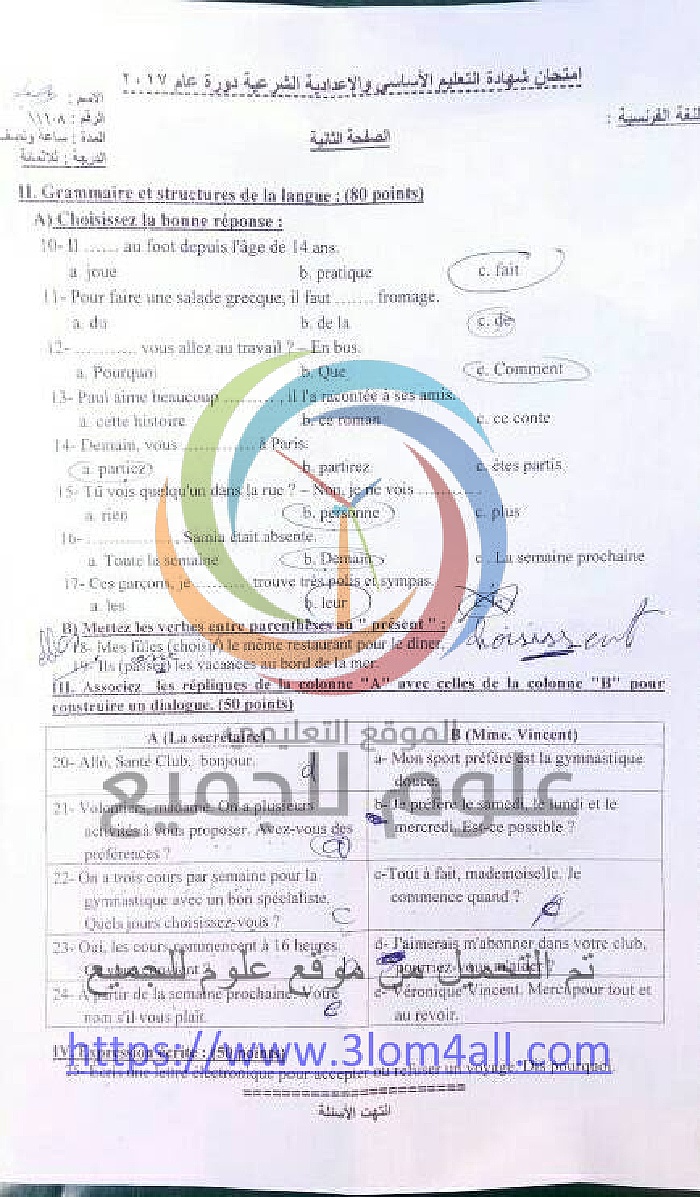 امتحان شهادة التعليم الأساسي والاعدادية الشرعية دورة عام ٢٠١٧
الاسم :
الرقم : ١١١٠٨
المدة : ساعة ونصف
الدرجة : ثلاثمائة
اللغة الفرنسية :
الصفحة الثانية
II. Grammaire et structures de la langue : (80 points)
A) Choisissez la bonne réponse :
10- Il ...... au foot depuis l'âge de 14 ans.
a. joue b. pratique c. fait
11- Pour faire une salade grecque, il faut ....... fromage.
a. du b. de la c. de
12- ........... vous allez au travail ? – En bus.
a. Pourquoi b. Que c. Comment
13- Paul aime beaucoup .........., il l'a racontée à ses amis.
a. cette histoire b. ce roman c. ce conte
14- Demain, vous ............. à Paris.
a. partiez b. partirez c. êtes partis
15- Tu vois quelqu'un dans la rue ? – Non, je ne vois ............
a. rien b. personne c. plus
16- ................, Samia était absente.
a. Toute la semaine b. Demain c. La semaine prochaine
17- Ces garçons, je .......... trouve très polis et sympas.
a. les b. leur
B) Mettez les verbes entre parenthèses au " présent " :
18- Mes filles (choisir) le même restaurant pour le dîner.
choisissent
19- Ils (passer) les vacances au bord de la mer.
III. Associez les répliques de la colonne "A" avec celles de la colonne "B" pour
construire un dialogue. (50 points)
الموقع التعليمي
علوم للجميع
A (La secrétaire) B (Mme. Vincent)
20- Allô, Santé Club, bonjour. d
a- Mon sport préféré est la gymnastique
douce.
21- Volontiers, madame. On a plusieurs
activités à vous proposer. Avez-vous des
préférences ? a
b- Je préfère le samedi, le lundi et le
mercredi. Est-ce possible ?
22- On a trois cours par semaine pour la
gymnastique avec un bon spécialiste.
Quels jours choisissez-vous ? c
c-Tout à fait, mademoiselle. Je
commence quand ?
23- Oui, les cours commencent à 16 heures.
d- J'aimerais m'abonner dans votre club,
تم التحميل من موقع علوم للجميع
24- A partir de la semaine prochaine. Votre
nom s'il vous plaît. e
e- Véronique Vincent. Merci pour tout et
au revoir.
https://www.3lom4all.com
IV. Expression écrite : (50 points)
25- Ecris une lettre électronique pour accepter ou refuser un voyage. Dis pourquoi.
انتهت الأسئلة